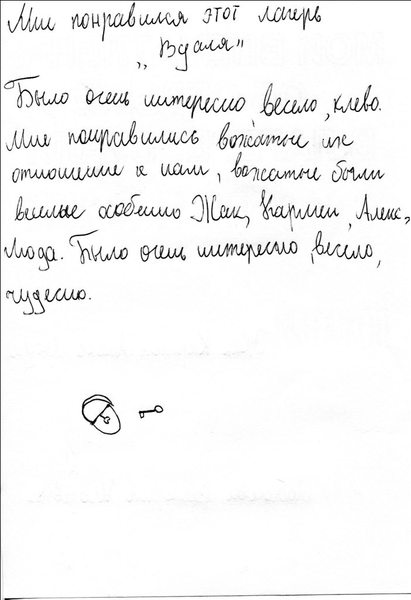 Мне понравился этот лагерь
„Вуаля"
Было очень интересно весело, клево.
Мне понравились вожатые их
отношение к нам, вожатые были
веселые особенно Жак, Кармен, Алекс,
Люда. Было очень интересно, весело,
чудесно.